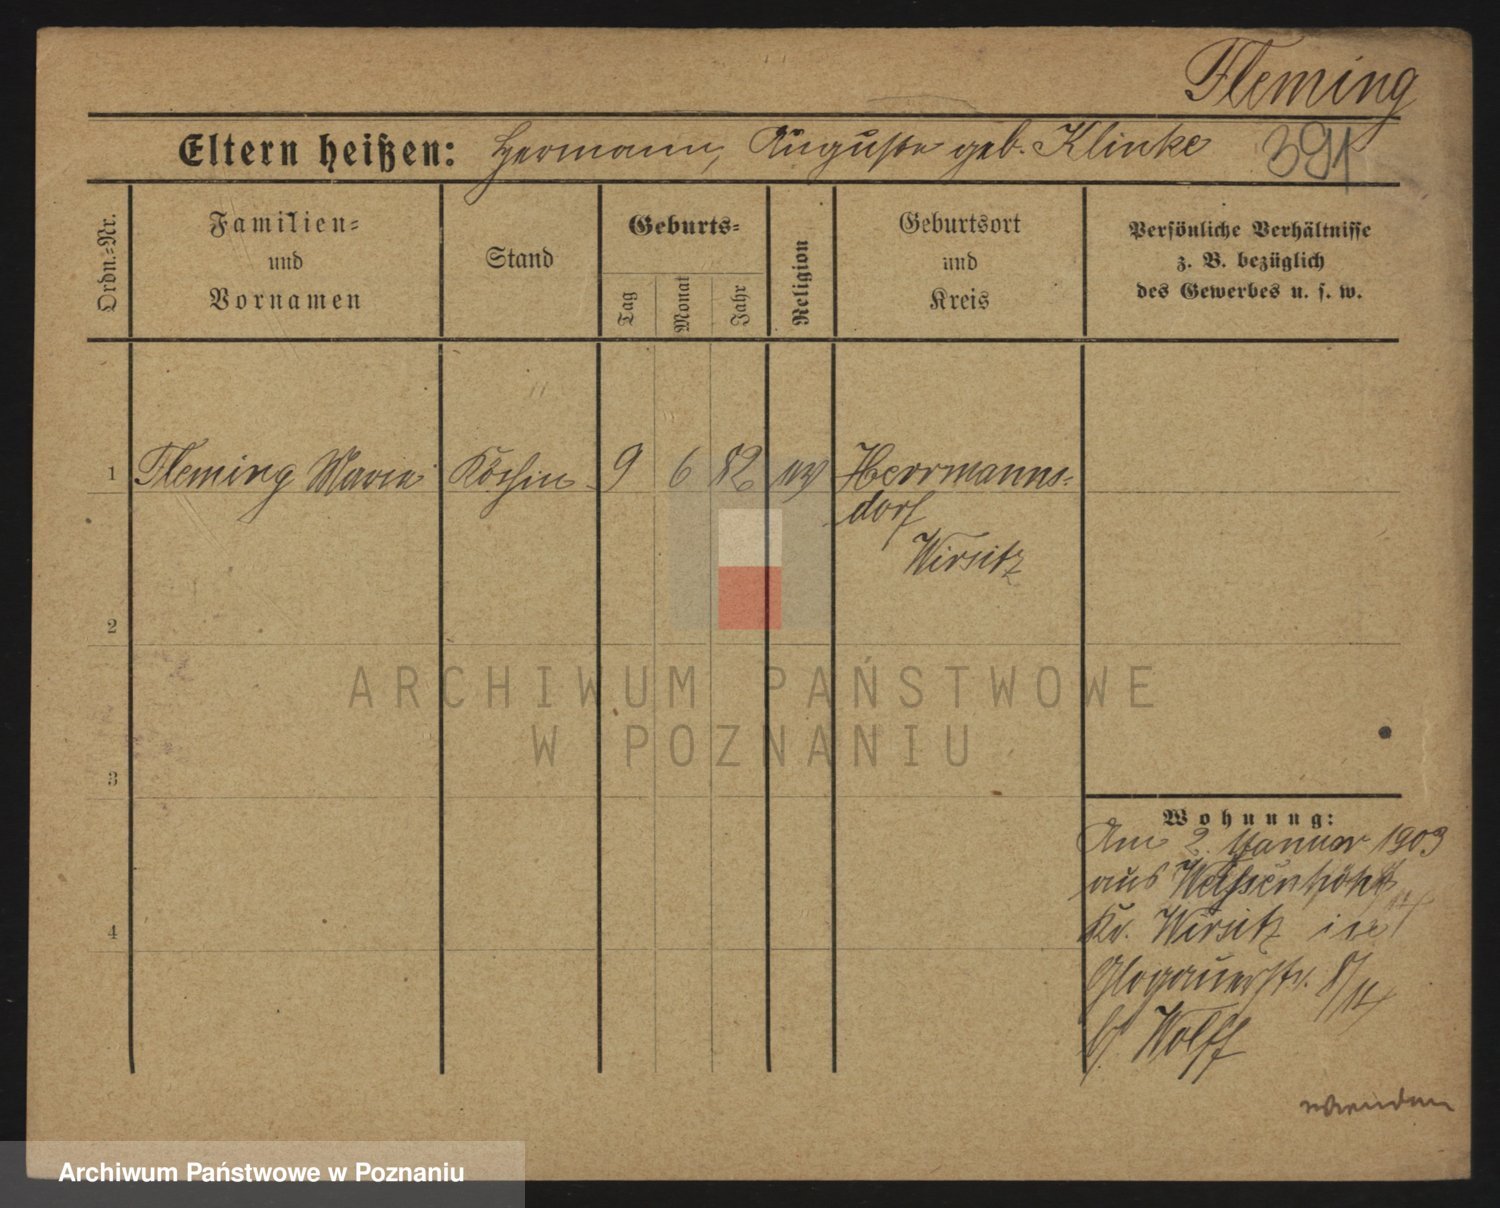 Fleming
Eltern heißen: Hermann, Auguste geb. Klinke 391
Ordn.=Nr.
Familien=
und
Vornamen
Stand
Geburts=
Tag
Monat
Jahr
Religion
Geburtsort
und
Kreis
Persönliche Verhältnisse
z. B. bezüglich
des Gewerbes u. s. w.
1 Fleming Marie Köchin 9 6 82 Herrmanns=
dorf
Wirsitz
2
ARCHIWUM PAŃSTWOWE
W POZNANIU
3
Wohnung:
Am 2. Januar 1903
aus Weißenhöhe
4
Kr. Wirsitz
Glogauerstr.
b. Wolff
wenden
Archiwum Państwowe w Poznaniu